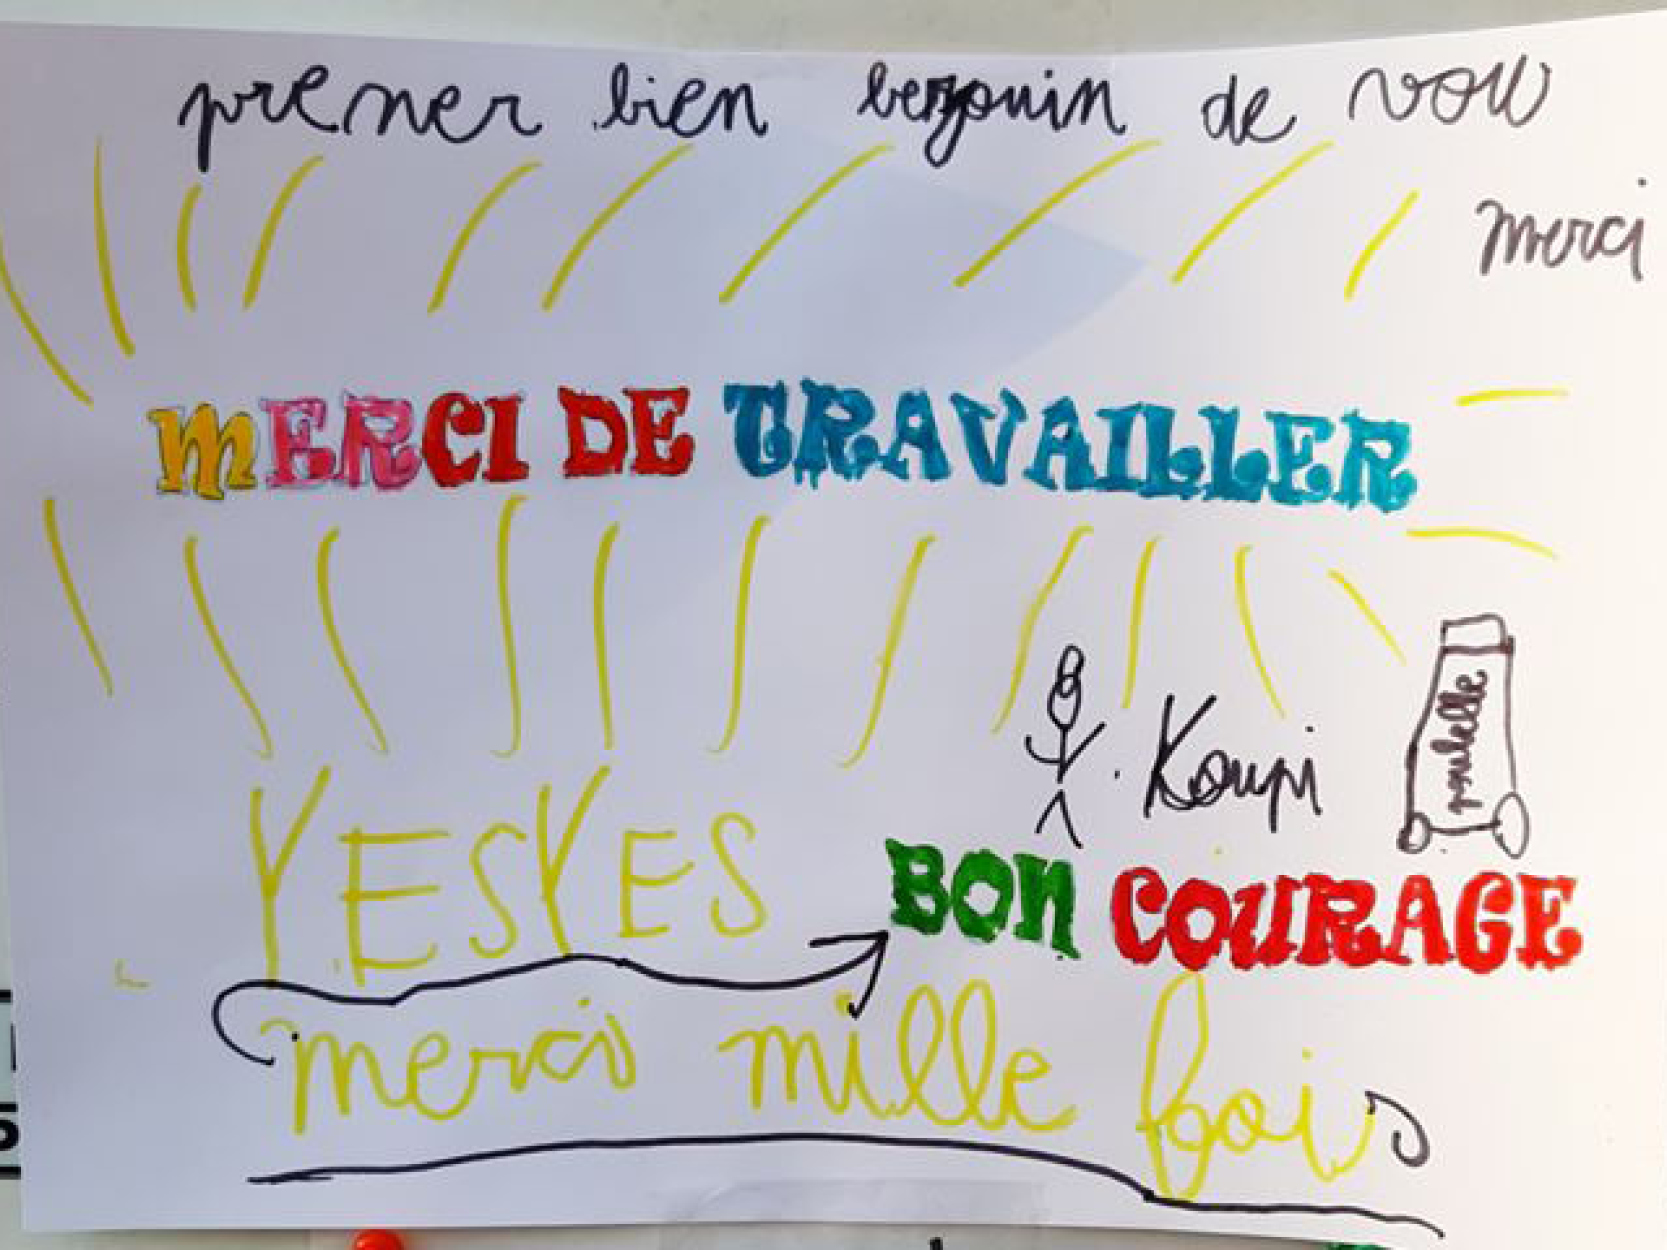 prener bien bezouin de vou
merci
MERCI DE TRAVAILLER
Koupi
poubelle
YES YES
BON COURAGE
merci mille fois